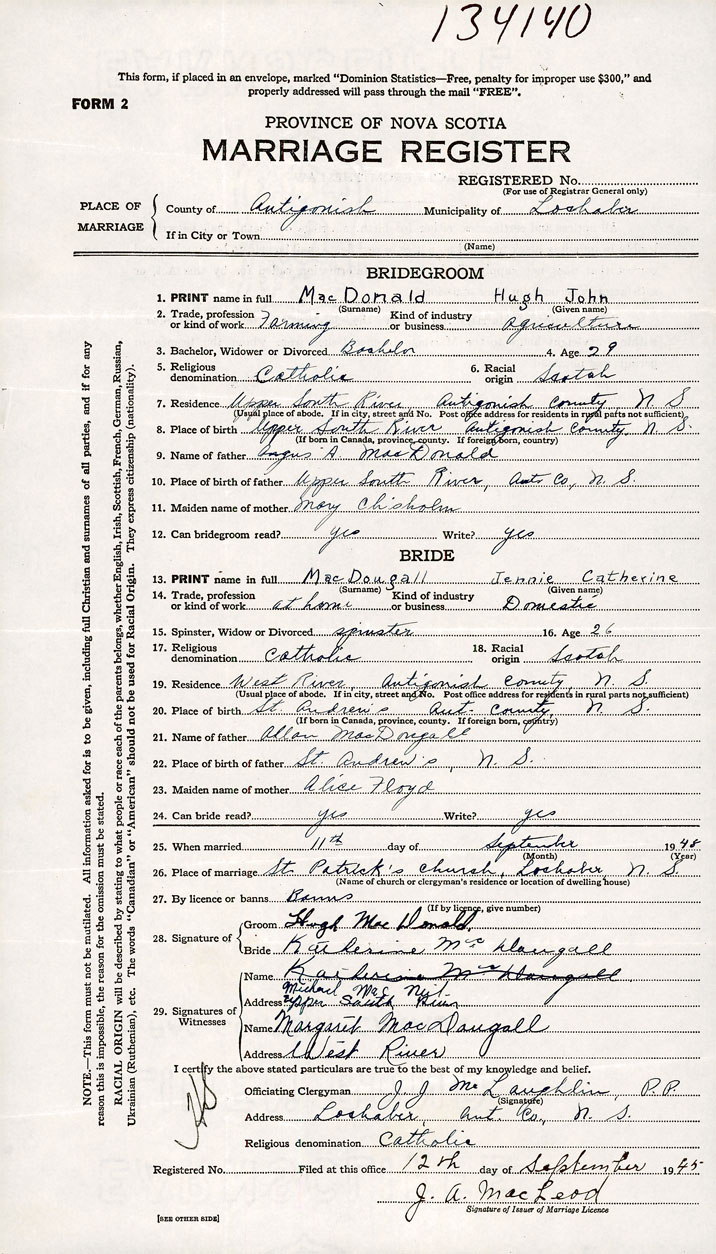 134140
This form, if placed in an envelope, marked "Dominion Statistics—Free, penalty for improper use $300," and
properly addressed will pass through the mail "FREE".
FORM 2
PROVINCE OF NOVA SCOTIA
MARRIAGE REGISTER
REGISTERED No.
(For use of Registrar General only)
PLACE OF MARRIAGE
County of Antigonish Municipality of Lochaber
If in City or Town
(Name)
BRIDEGROOM
1. PRINT name in full MacDonald Hugh John
(Surname) (Given name)
2. Trade, profession or kind of work Farming Kind of industry or business Agriculture
3. Bachelor, Widower or Divorced Bachelor 4. Age 29
5. Religious denomination Catholic 6. Racial origin Scotch
7. Residence Upper South River, Antigonish County, N. S.
(Usual place of abode. If in city, street and No. Post office address for residents in rural parts not sufficient)
8. Place of birth Upper South River Antigonish County, N. S.
(If born in Canada, province, county. If foreign born, country)
9. Name of father Angus A. MacDonald
10. Place of birth of father Upper South River, Ant. Co., N. S.
11. Maiden name of mother Mary Chisholm
12. Can bridegroom read? yes Write? yes
BRIDE
13. PRINT name in full MacDougall Jennie Catherine
(Surname) (Given name)
14. Trade, profession or kind of work at home Kind of industry or business Domestic
15. Spinster, Widow or Divorced spinster 16. Age 26
17. Religious denomination Catholic 18. Racial origin Scotch
19. Residence West River, Antigonish County, N. S.
(Usual place of abode. If in city, street and No. Post office address for residents in rural parts not sufficient)
20. Place of birth St. Andrew's Ant. County, N. S.
(If born in Canada, province, county. If foreign born, country)
21. Name of father Allan MacDougall
22. Place of birth of father St. Andrew's, N. S.
23. Maiden name of mother Alice Floyd
24. Can bride read? yes Write? yes
25. When married 11th day of September 1945
(Month) (Year)
26. Place of marriage St. Patrick's Church, Lochaber, N. S.
(Name of church or clergyman's residence or location of dwelling house)
27. By licence or banns Banns
(If by licence, give number)
28. Signature of
Groom Hugh MacDonald
Bride Katherine McDougall
29. Signatures of Witnesses
Name Katherine McDougall
Michael MacNeil
Address Upper South River
Name Margaret MacDougall
Address West River
I certify the above stated particulars are true to the best of my knowledge and belief.
Officiating Clergyman J. J. McLaughlin, P.P.
(Signature)
Address Lochaber, Ant. Co., N. S.
Religious denomination Catholic
Registered No. Filed at this office 12th day of September 1945
J. A. MacLeod
Signature of Issuer of Marriage Licence
[SEE OTHER SIDE]
NOTE.—This form must not be mutilated. All information asked for is to be given, including full Christian and surnames of all parties, and if for any
reason this is impossible, the reason for the omission must be stated.
RACIAL ORIGIN will be described by stating to what people or race each of the parents belongs, whether English, Irish, Scottish, French, German, Russian,
Ukrainian (Ruthenian), etc. The words "Canadian" or "American" should not be used for Racial Origin. They express citizenship (nationality).